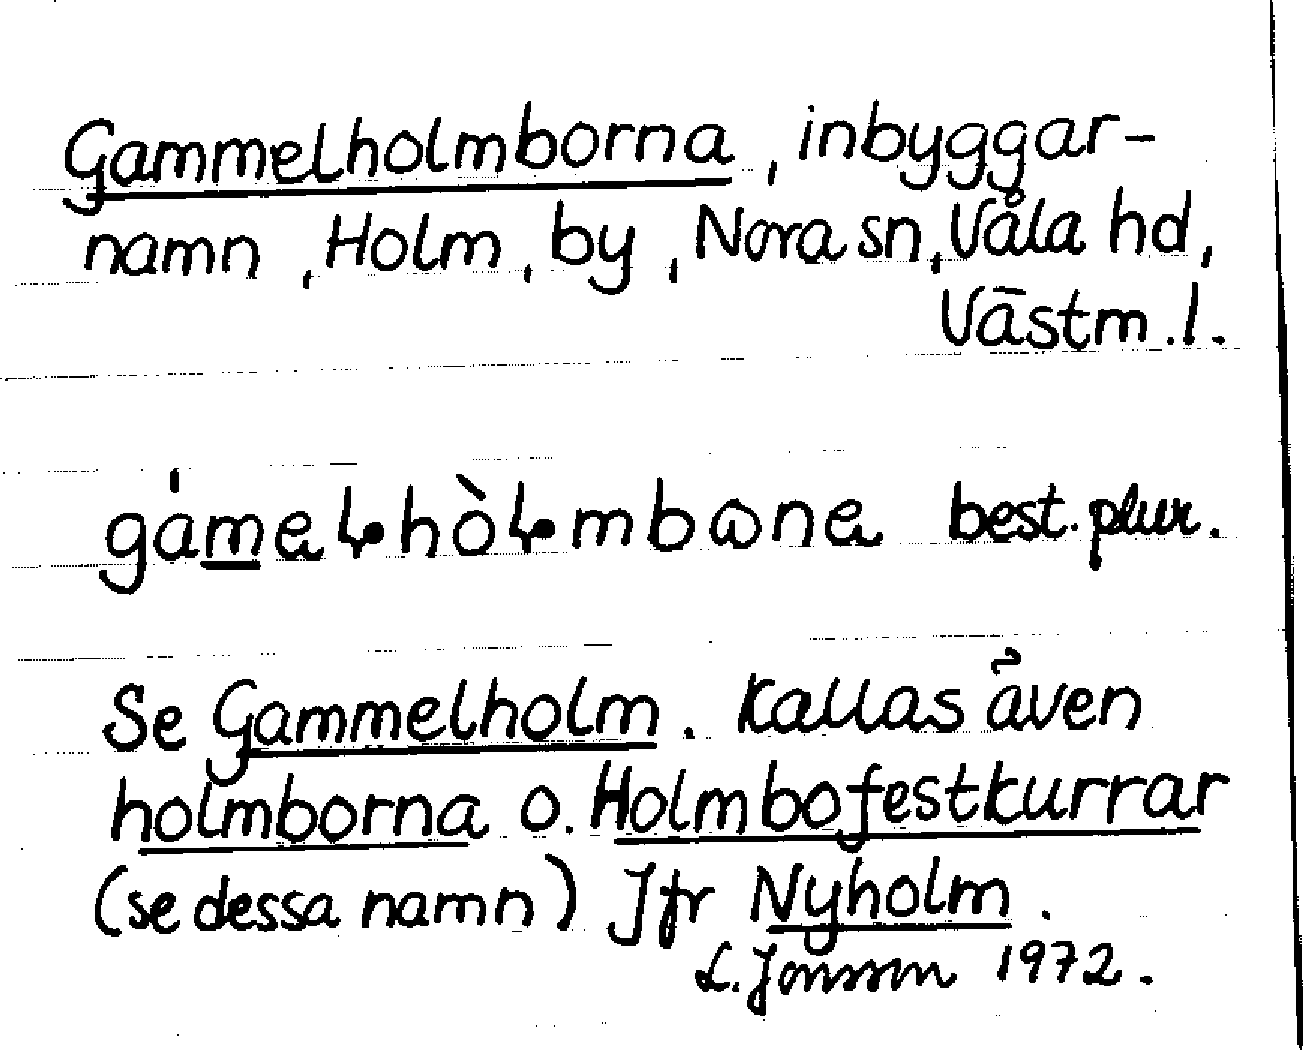 Gammelholmborna, inbyggar-
namn, Holm, by, Nora sn, Våla hd,
Västm. l.
best. plur.
Se Gammelholm. Kallas även
holmborna o. Holmbofestkurrar
(se dessa namn) Jfr Nyholm.
L. Jonsson 1972.